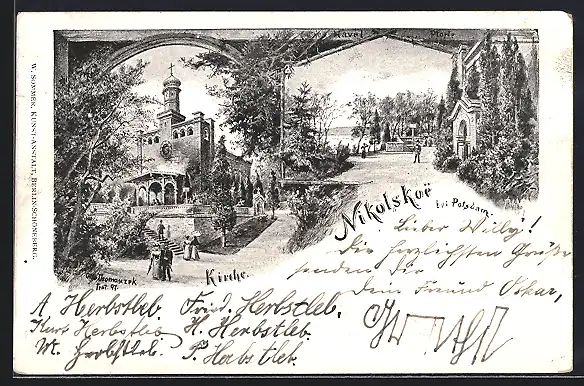 W. SOMMER, KUNST-ANSTALT, BERLIN-SCHÖNEBERG.
Havel
Nikolskoë
bei Potsdam.
Kirche.
Lieber Willy!
Die herzlichsten Grüße
senden Dir
Dein Freund Oskar,
A Herbstleb. Fried. Herbstleb.
Kurt Herbstleb H. Herbstleb.
M. Herbstleb. P. Herbstleb.